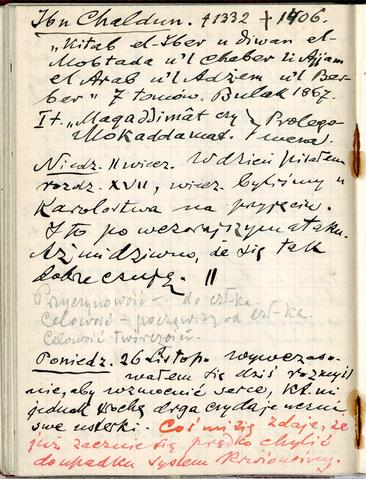 Ibn Chaldun. †1332 † 1406.
"Kitab el-Iber u diwan el-
Mobtada u'l chaber li Ajjam
el Arab u'l Adżem u'l Ber-
ber" 7 tomów. Bulak 1867.
I t. "Magaddimât czy Prolego-
Mokaddamat. mena
Niedz. 11 wiecz. W dzień pisałem
rozdz. XVII, wiecz. byliśmy u
na przyjęciu.
I to po wczorajszym ataku.
Aż mi dziwno, że się tak
dobrze czuję. ||
Przyczynowość – do czł-ka.
Celowość – począwszy od czł-ka.
Celowość twórczości.
Poniedz. 26 Listop. Wywczaso-
wałem się dziś rozmyśl
nie, aby wzmocnić serce, kt. mi
jednak trochę drga
swe usterki. Coś mi się zdaje, że
już zacznie się prędko chylić
do upadku system